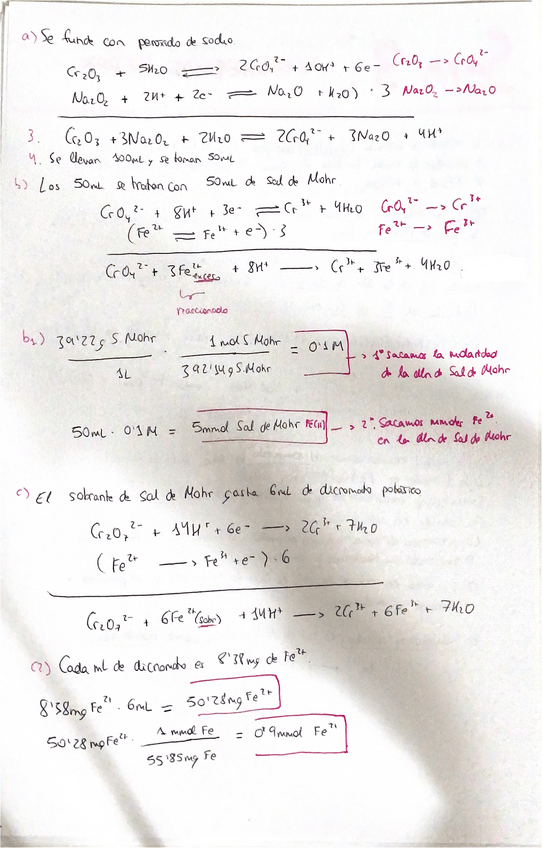 a) Se funde con peróxido de sodio.
Cr₂O₃ + 5H₂O ⇌ 2CrO₄²⁻ + 10H⁺ + 6e- Cr₂O₃ → CrO₄²⁻
Na₂O₂ + 2H⁺ + 2e- ⇌ Na₂O + H₂O) · 3 Na₂O₂ → Na₂O
3. Cr₂O₃ + 3Na₂O₂ + 2H₂O ⇌ 2CrO₄²⁻ + 3Na₂O + 4H⁺
4. Se llevan 100mL y se toman 50mL
b) Los 50mL se tratan con 50mL de Sal de Mohr.
CrO₄²⁻ + 8H⁺ + 3e- ⇌ Cr³⁺ + 4H₂O CrO₄²⁻ → Cr³⁺
(Fe²⁺ ⇌ Fe³⁺ + e-) · 3 Fe²⁺ → Fe³⁺
CrO₄²⁻ + 3Fe²⁺ exceso + 8H⁺ → Cr³⁺ + 3Fe³⁺ + 4H₂O.
↳ reaccionado
b₂) 39'22g S Mohr / 1L · 1 mol S Mohr / 392'14g S Mohr = 0'1M → 1º Sacamos la molaridad
de la dln de Sal de Mohr
50mL · 0'1M = 5mmol Sal de Mohr FE(II) → 2º. Sacamos mmoles Fe²⁺
en la dln de Sal de Mohr
c) El sobrante de Sal de Mohr gasta 6mL de dicromato potásico
Cr₂O₇²⁻ + 14H⁺ + 6e- → 2Cr³⁺ + 7H₂O
(Fe²⁺ → Fe³⁺ + e-) · 6
Cr₂O₇²⁻ + 6Fe²⁺(sobr) + 14H⁺ → 2Cr³⁺ + 6Fe³⁺ + 7H₂O
c2) Cada mL de dicromato es 8'38mg de Fe²⁺.
8'38mg Fe²⁺ · 6mL = 50'28mg Fe²⁺
50'28mg Fe²⁺ · 1 mmol Fe / 55'85mg Fe = 0'9mmol Fe²⁺